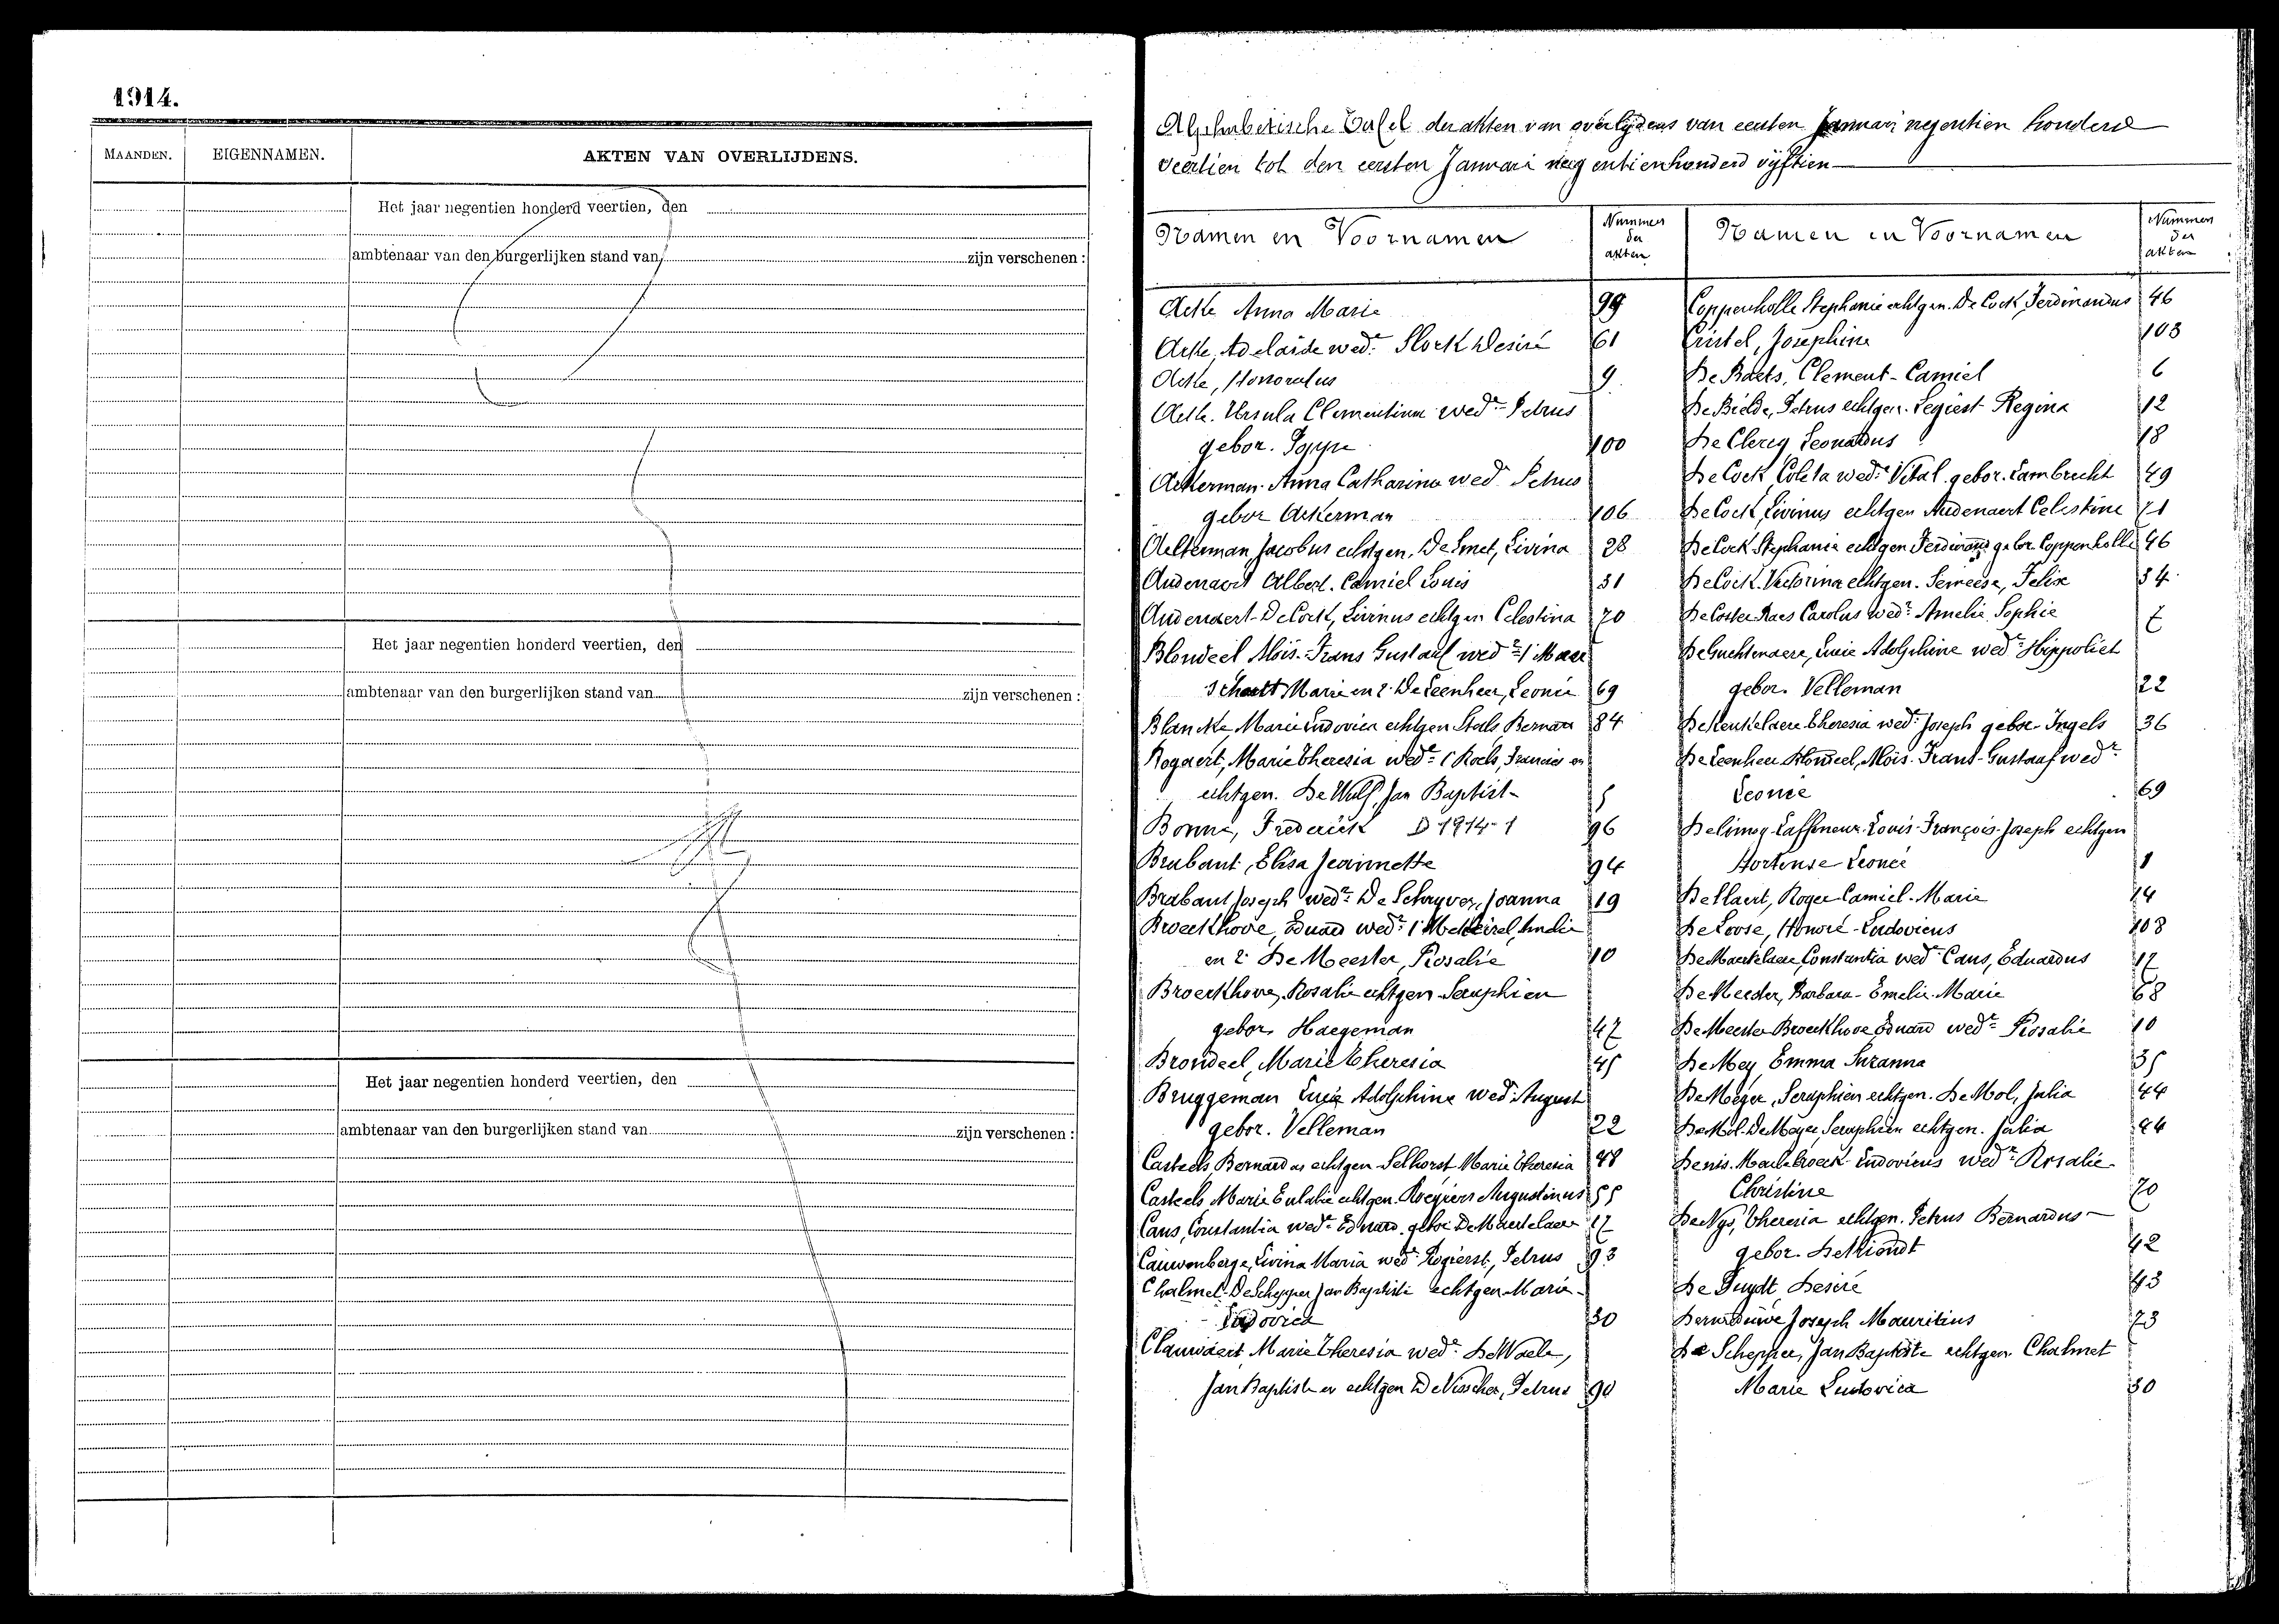 1914.
MAANDEN. EIGENNAMEN. AKTEN VAN OVERLIJDENS.
Het jaar negentien honderd veertien, den
ambtenaar van den burgerlijken stand van zijn verschenen :
Het jaar negentien honderd veertien, den
ambtenaar van den burgerlijken stand van zijn verschenen :
Het jaar negentien honderd veertien, den
ambtenaar van den burgerlijken stand van zijn verschenen :
Alphabetische Tafel der akten van overlijdens van eersten Januari negentien honderd
veertien tot den eersten Januari negentienhonderd vijftien
Namen en Voornamen Nummer der akten
Acke Anna Marie 99
Acke, Adelaide wede Slock Desiré 61
Acke, Honoratus 9
Acke. Ursula Clementina wede Petrus
gebor. 100
Ackerman Anna Catharina wede Petrus
gebor Ackerman 106
Aelterman Jacobus echtgen. De Smet, Livina 28
Audenaert Albert. Camiel Louis 31
Audenaert-De Cock, Livinus echtgen Celestina 70
Blondeel Aloïs-Frans Gustaaf wedr 1 Maer
schalt Marie en 2. De Leenheer, Leonie 69
Blancke, Marie Ludovica echtgen Staels Bernard 84
Bogaert, Marie Theresia wede 1 Roels, Francies en
echtgen. De Wulf Jan Baptist 5
Bonne, Frederick D 1914-1 96
Brabant, Elisa Jeannette 94
Brabant Joseph wedr De Schryver, Joanna 19
Broeckhove, Eduard wedr 1
en 2 De Meester, Rosalie 10
Broeckhove, Rosalie echtgen Seraphien
gebor. Haegeman 47
Brondeel, Marie Theresia 45
Bruggeman Lucie Adolphine wed August
gebor. Velleman 22
Casteels, Bernardus echtgen Selhorst Marie Theresia 48
Casteels, Marie Eulalie echtgen. Roegiers Augustinus 55
Caus, Constantia wede Eduard gebor De Maertelaere 17
Cauwenberge, Livina Maria wede Rogierst, Petrus 93
Chalmet-De Schepper Jan Baptiste echtgen Marie
Ludovica 30
Clauwaert, Marie Theresia wede De Waele,
Jan Baptist en echtgen De Visscher, Petrus 90
Namen en Voornamen Nummer der akten
Coppenholle Stephanie echtgen. De Cock Ferdinandus 46
Cristel, Josephina 103
De Baets, Clement-Camiel 6
De Bielde, Petrus echtgen. Regina 12
De Clercq Leonardus 18
De Cock, Coleta wede Vital. gebor. Lambrecht 49
De Cock, Livinus echtgen Audenaert Celestine 71
De Cock Stephanie echtgen Ferdinand gebor Coppenholle 46
De Cock. Victorina echtgen. Semeese, Felix 34
De Coster-Raes Carolus wedr Amelie Sophie 7
De Guchtenaere, Lucie Adolphine wede Hippoliet
gebor. Velleman 22
De Keukelaere Theresia wede Joseph gebor Ingels 36
De Leenheer Blondeel, Aloïs-Frans-Gustaaf wedr
Leonie 69
Delimoy-Laffineur-Louis-François-Joseph echtgen
Hortense Leonie 1
Dellaert, Roger Camiel-Marie 14
De Loose, Honoré-Ludovicus 108
De Maertelaere, Constantia wede Caus, Eduardus 17
De Meeder, Barbara-Emelie-Marie 68
De Meester Broeckhove Eduard wedr Rosalie 10
De Mey, Emma Suzanna 35
De Meyer, Seraphien echtgen. De Mol, Julia 44
De Mol-De Meyer Seraphien echtgen. Julia 44
Denis-Maelbroeck-Ludovicus wedr Rosalie
Christine 20
De Nys, Theresia echtgen. Petrus Bernardus
gebor. De Miondt 42
De Puydt, Desiré 43
Deruddere Joseph Mauritius 73
De Schepper, Jan Baptiste echtgen Chalmet
Marie Ludovica 30